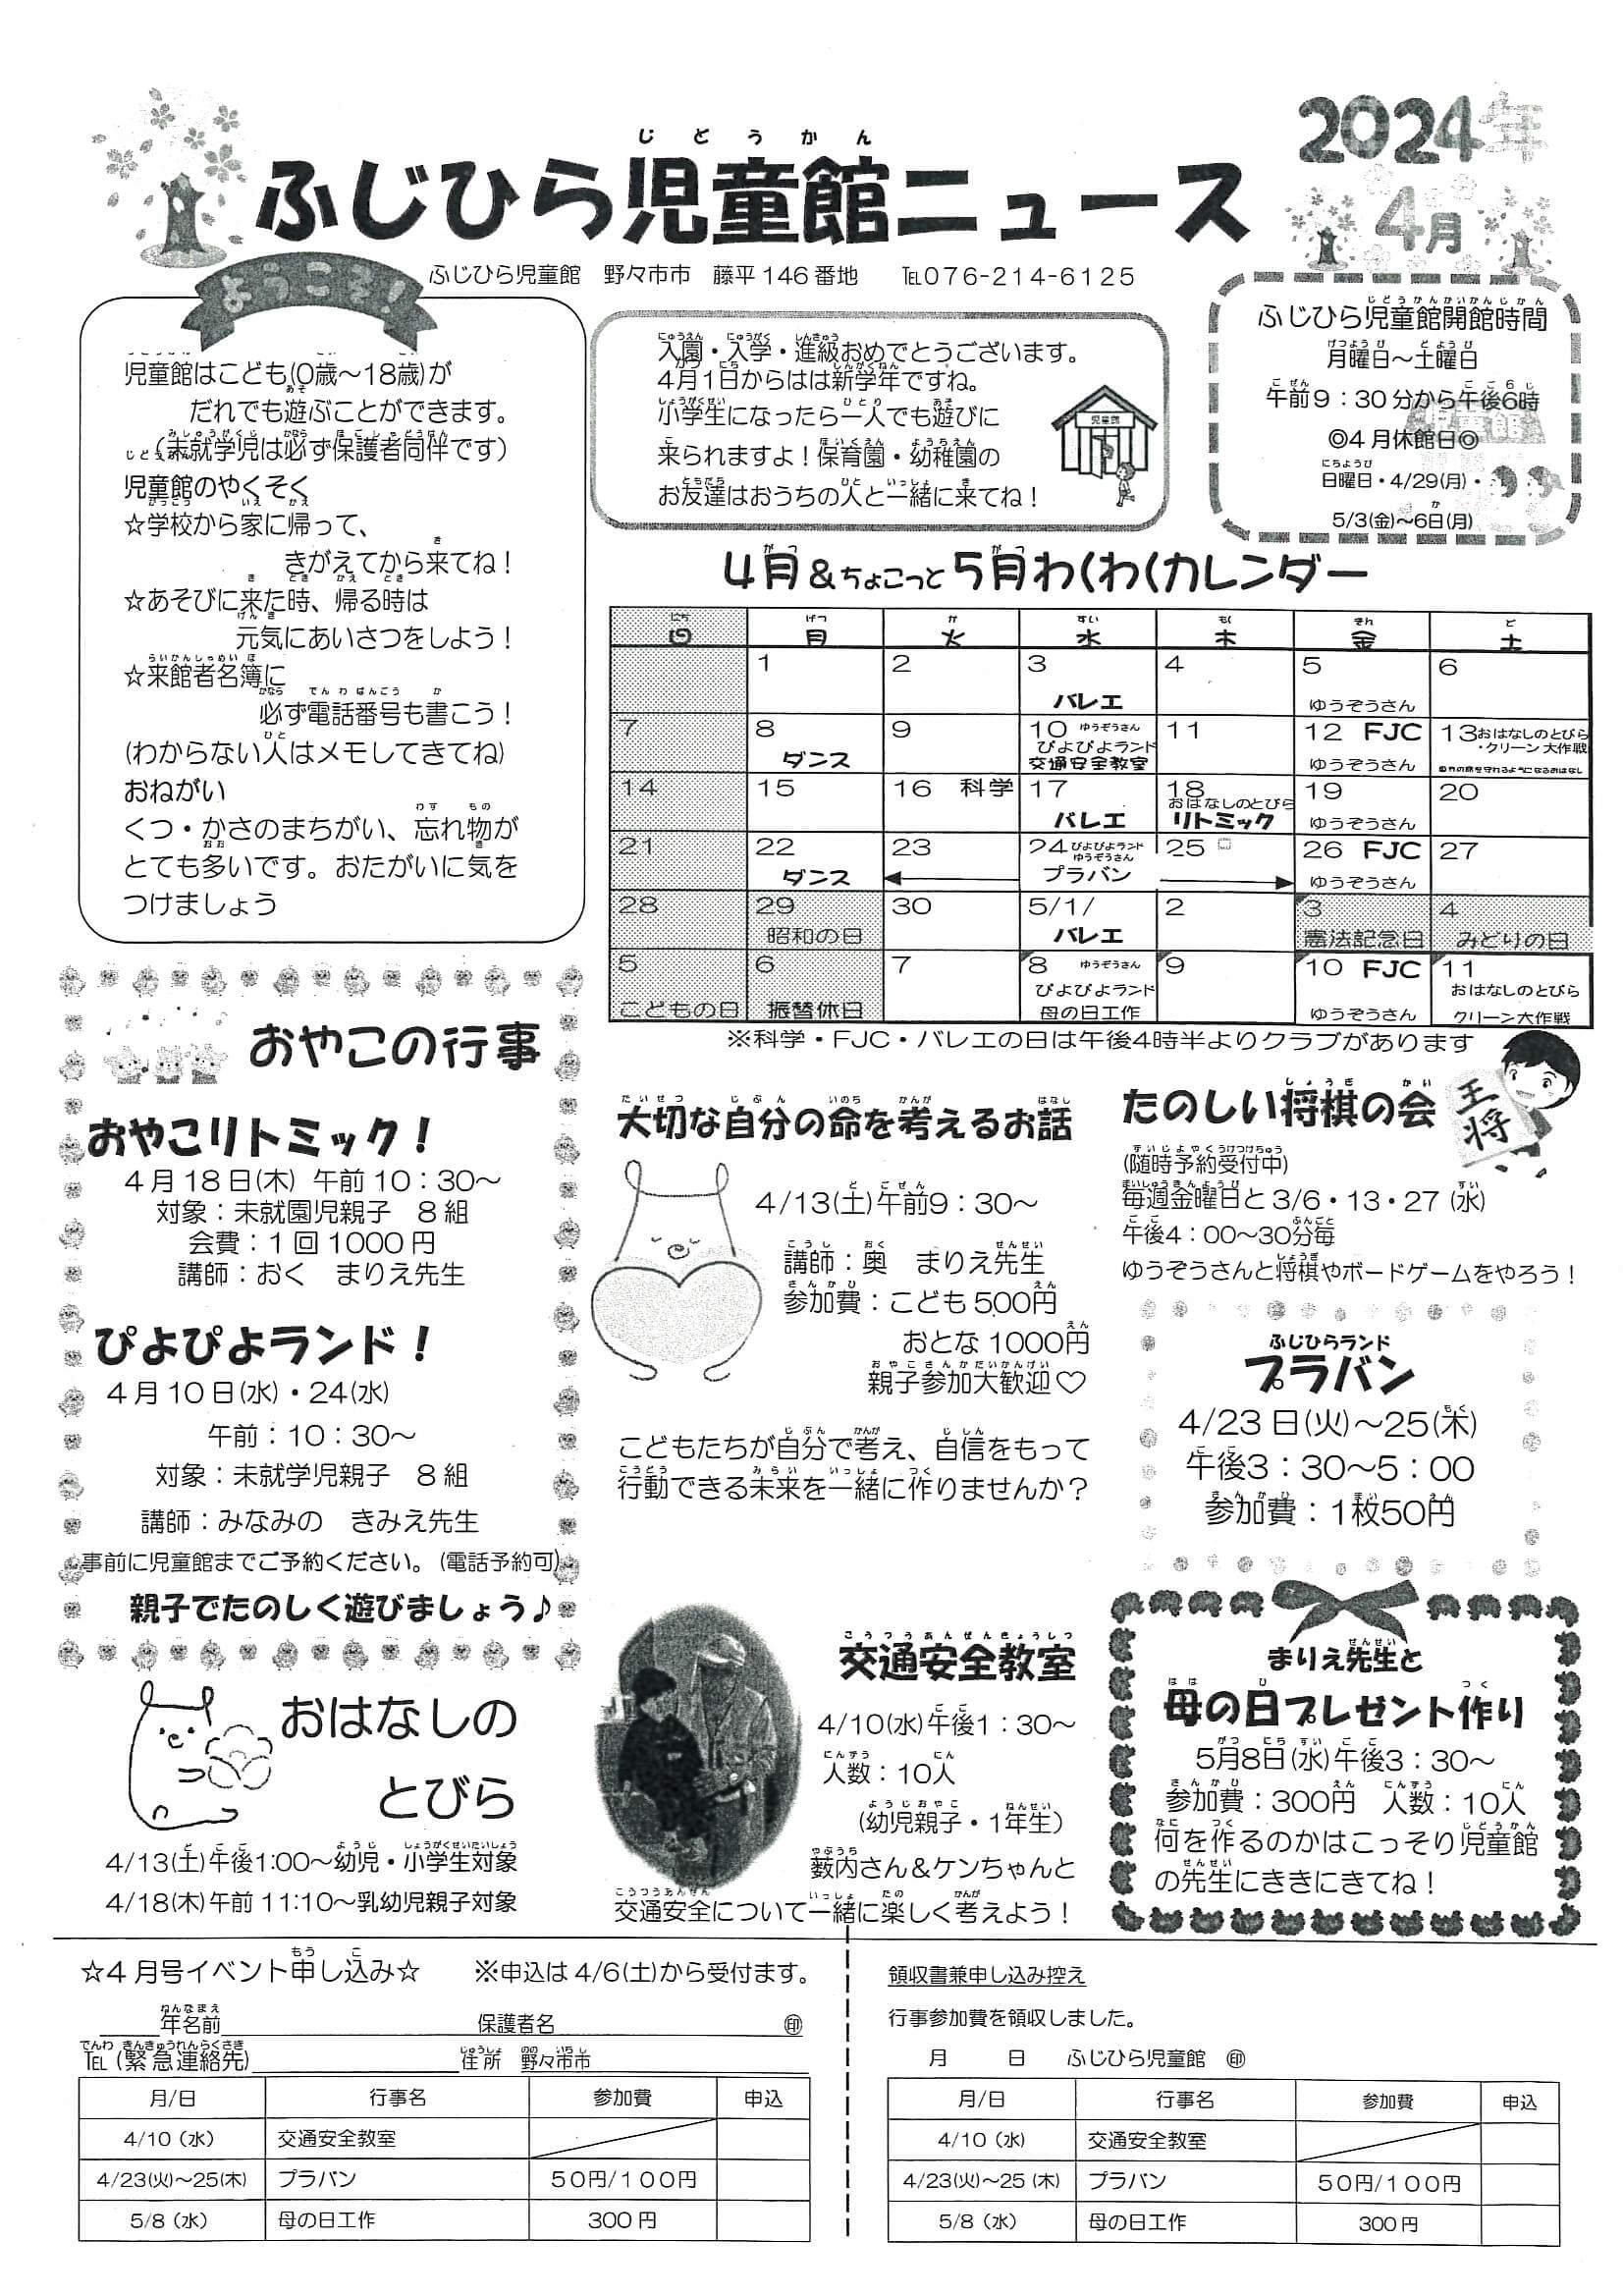 ふじひら児童館ニュース
2024年
4月
ふじひら児童館　野々市市　藤平146番地　℡076-214-6125
ようこそ!
児童館はこども(0歳～18歳)が
だれでも遊ぶことができます。
(未就学児は必ず保護者同伴です)
児童館のやくそく
☆学校から家に帰って、
きがえてから来てね！
☆あそびに来た時、帰る時は
元気にあいさつをしよう！
☆来館者名簿に
必ず電話番号も書こう！
(わからない人はメモしてきてね)
おねがい
くつ・かさのまちがい、忘れ物が
とても多いです。おたがいに気を
つけましょう
入園・入学・進級おめでとうございます。
4月1日からはは新学年ですね。
小学生になったら一人でも遊びに
来られますよ！保育園・幼稚園の
お友達はおうちの人と一緒に来てね！
児童館
ふじひら児童館開館時間
月曜日～土曜日
午前9：30分から午後6時
◎4月休館日◎
日曜日・4/29(月)・
5/3(金)～6日(月)
4月＆ちょこっと5月わくわくカレンダー
日 月 火 水 木 金 土
1 2 3 バレエ 4 5 ゆうぞうさん 6
7 8 ダンス 9 10 ゆうぞうさん ぴよぴよランド 交通安全教室 11 12 FJC ゆうぞうさん 13 おはなしのとびら ・クリーン大作戦
14 15 16 科学 17 バレエ 18 おはなしのとびら リトミック 19 ゆうぞうさん 20
21 22 ダンス 23 24 ぴよぴよランド ゆうぞうさん プラバン 25 26 FJC ゆうぞうさん 27
28 29 昭和の日 30 5/1/ バレエ 2 3 憲法記念日 4 みどりの日
5 こどもの日 6 振替休日 7 8 ゆうぞうさん ぴよぴよランド 母の日工作 9 10 FJC ゆうぞうさん 11 おはなしのとびら クリーン大作戦
※科学・FJC・バレエの日は午後4時半よりクラブがあります
おやこの行事
おやこリトミック！
4月18日(木) 午前10：30～
対象：未就園児親子　8組
会費：1回1000円
講師：おく　まりえ先生
ぴよぴよランド！
4月10日(水)・24(水)
午前：10：30～
対象：未就学児親子　8組
講師：みなみの　きみえ先生
事前に児童館までご予約ください。(電話予約可)
親子でたのしく遊びましょう♪
大切な自分の命を考えるお話
4/13(土)午前9：30～
講師：奥　まりえ先生
参加費：こども500円
おとな1000円
親子参加大歓迎♡
こどもたちが自分で考え、自信をもって
行動できる未来を一緒に作りませんか？
たのしい将棋の会
王将
(随時予約受付中)
毎週金曜日と3/6・13・27(水)
午後4：00～30分毎
ゆうぞうさんと将棋やボードゲームをやろう！
ふじひらランド
プラバン
4/23日(火)～25(木)
午後3：30～5：00
参加費：1枚50円
おはなしの
とびら
4/13(土)午後1:00～幼児・小学生対象
4/18(木)午前11:10～乳幼児親子対象
交通安全教室
4/10(水)午後1：30～
人数：10人
(幼児親子・1年生)
藪内さん＆ケンちゃんと
交通安全について一緒に楽しく考えよう！
まりえ先生と
母の日プレゼント作り
5月8日(水)午後3：30～
参加費：300円　人数：10人
何を作るのかはこっそり児童館
の先生にききにきてね！
☆4月号イベント申し込み☆　※申込は4/6(土)から受付ます。
年名前　保護者名　㊞
℡(緊急連絡先)　住所　野々市市
月/日 行事名 参加費 申込
4/10（水） 交通安全教室
4/23(火)～25(木) プラバン 50円/100円
5/8（水） 母の日工作 300円
領収書兼申し込み控え
行事参加費を領収しました。
月　日　ふじひら児童館　㊞
月/日 行事名 参加費 申込
4/10（水） 交通安全教室
4/23(火)～25（木） プラバン 50円/100円
5/8（水） 母の日工作 300円